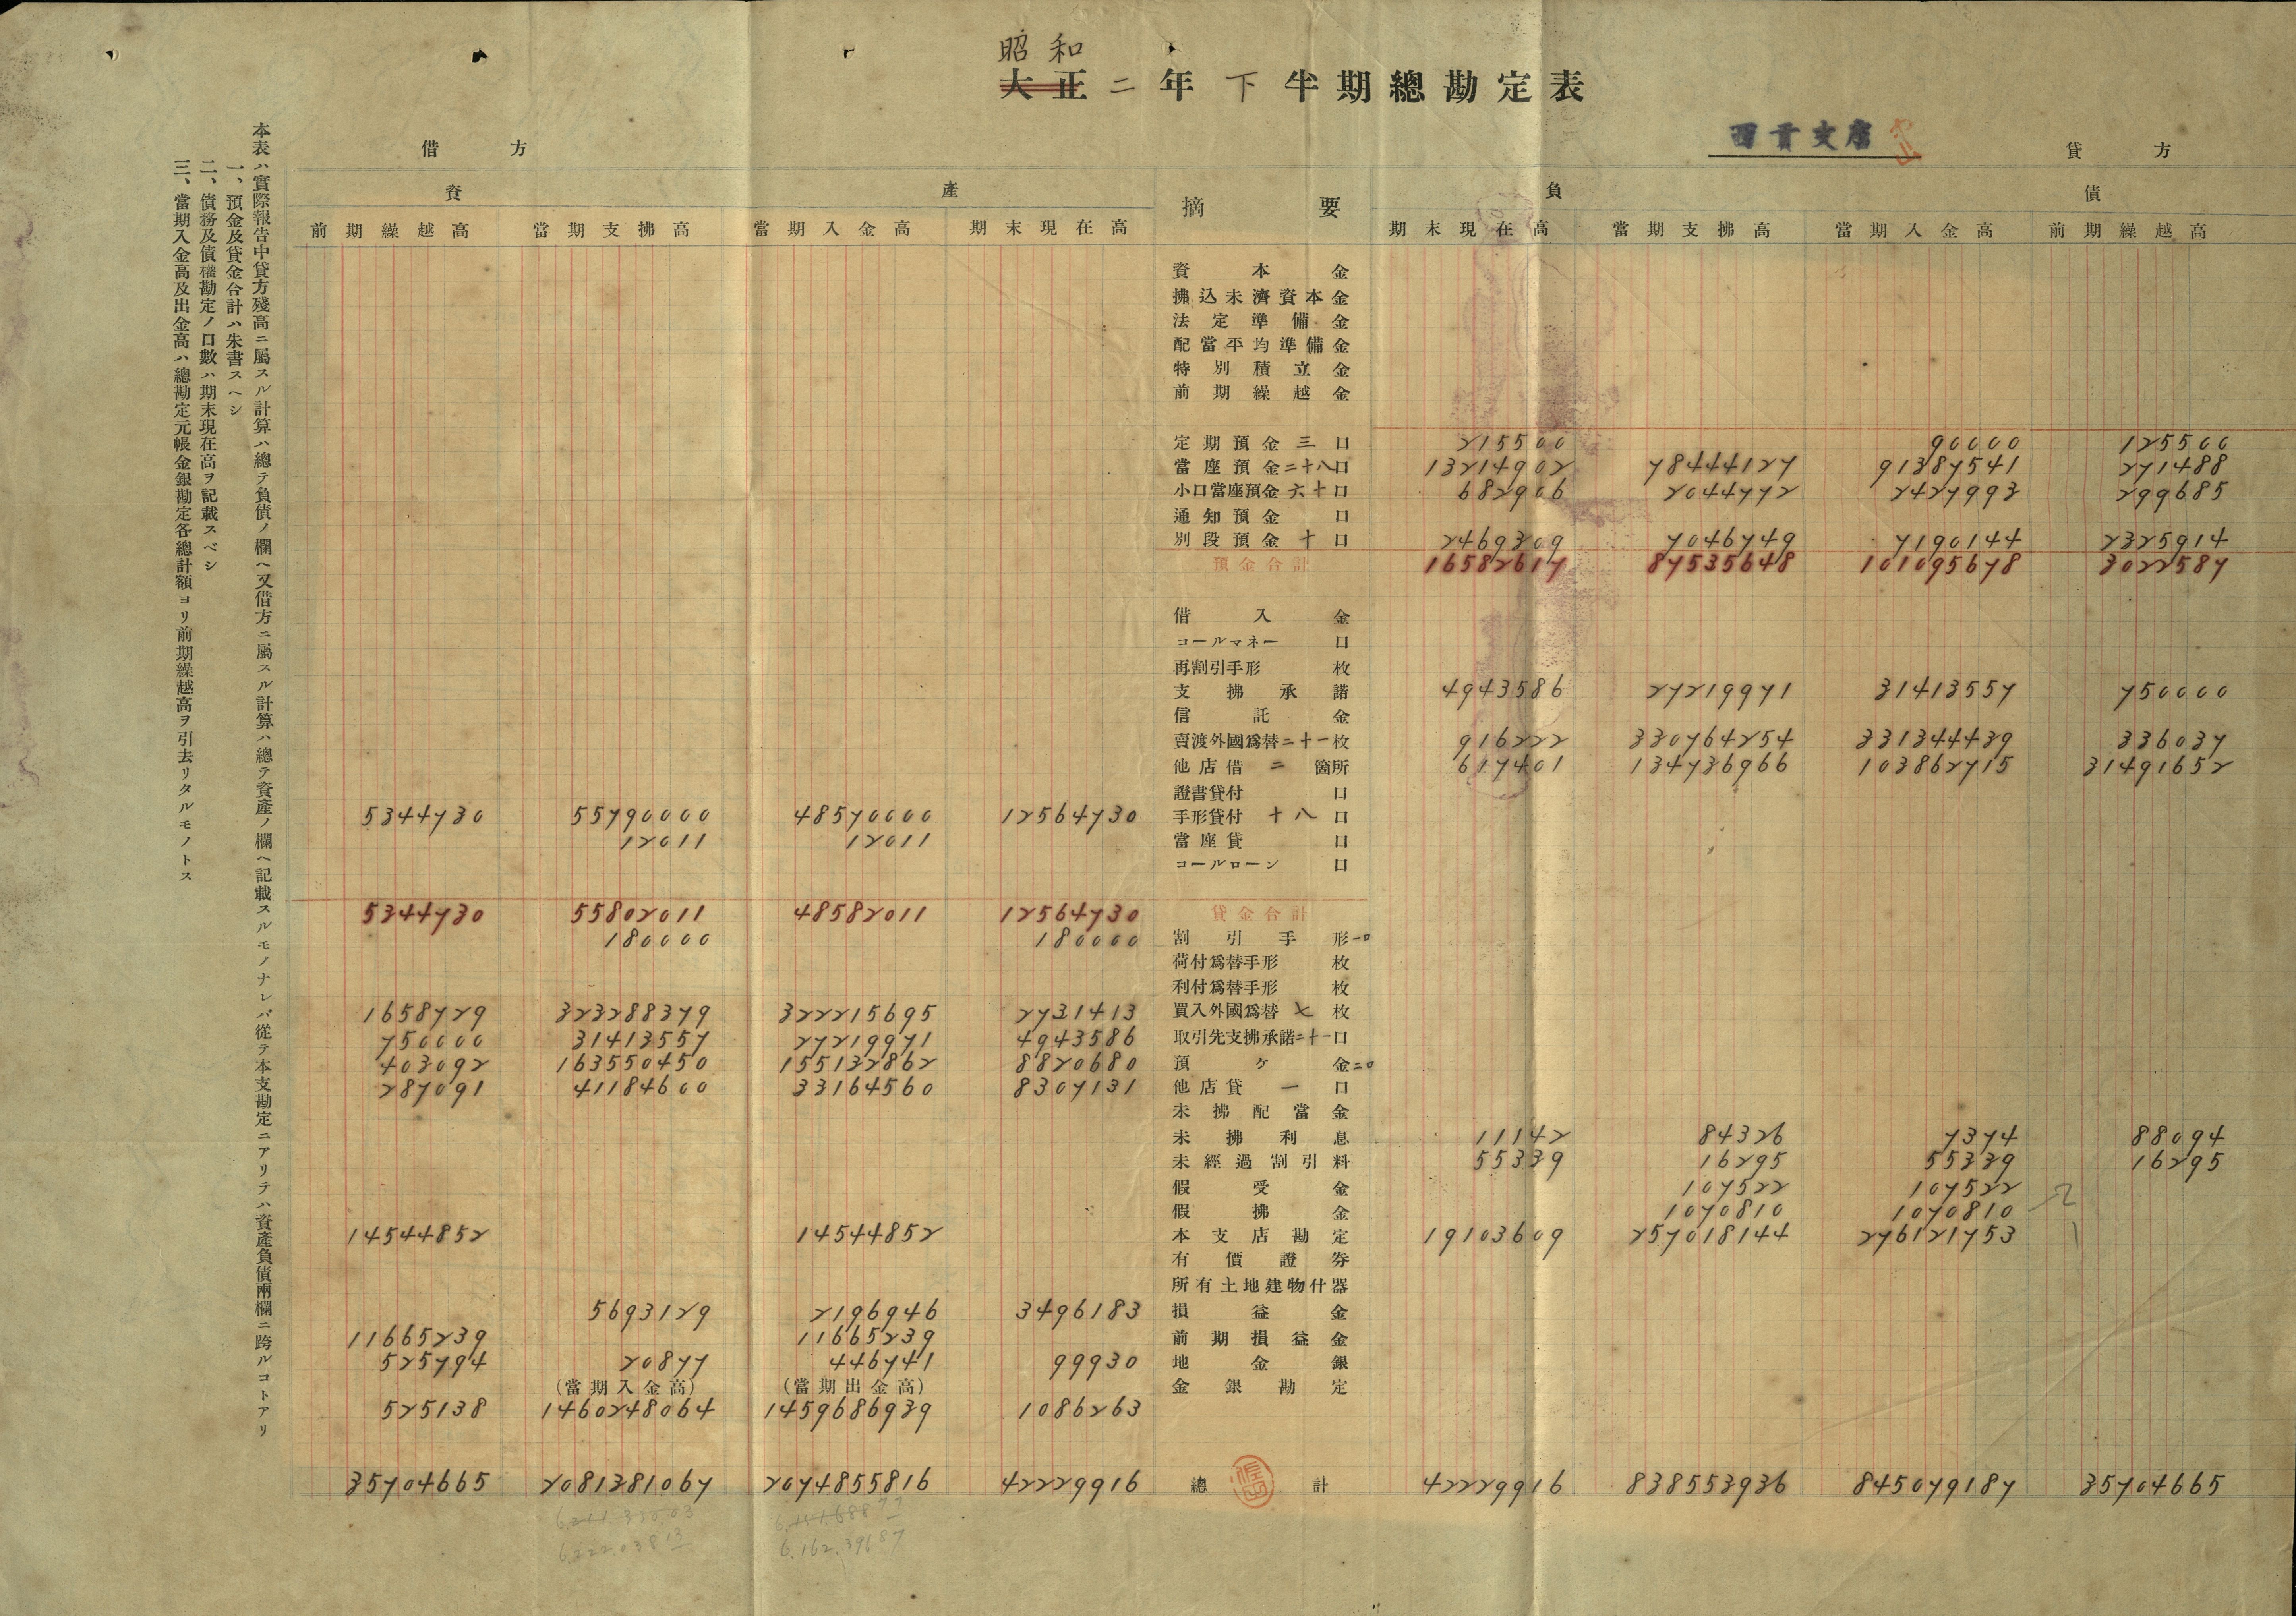 昭和
大正二年下半期總勘定表
西貢支店
借方 貸方
資 產 摘要 負 債
前期繰越高 當期支拂高 當期入金高 期末現在高 期末現在高 當期支拂高 當期入金高 前期繰越高
資本金
拂込未濟資本金
法定準備金
配當平均準備金
特別積立金
前期繰越金
定期預金三口 215500 90000 125500
當座預金二十八口 13214902 78444127 91387541 271488
小口當座預金六十口 682906 2044772 2427993 299685
通知預金 口
別段預金十口 2469309 7046749 7190144 2325914
預金合計 16582617 87535648 101095678 3022587
借入金
コールマネー 口
再割引手形 枚
支拂承諾 4943586 27219971 31413557 750000
信託金
賣渡外國爲替二十一枚 916222 330764254 331344439 336037
他店借二箇所 617401 134736966 103862715 31491652
證書貸付 口
5344730 55790000 48570000 12564730 手形貸付十八口
12011 12011 當座貸 口
コールローン 口
5344730 55802011 48582011 12564730 貸金合計
180000 180000 割引手形一口
荷付爲替手形 枚
利付爲替手形 枚
1658729 323288379 322215695 2731413 買入外國爲替七枚
750000 31413557 27219971 4943586 取引先支拂承諾二十一口
403092 163550450 155132862 8820680 預ケ金二口
287091 41184600 33164560 8307131 他店貸一口
未拂配當金
未拂利息 11142 84326 7374 88094
未經過割引料 55339 16295 55339 16295
假受金 107522 107522
假拂金 1070810 1070810
14544852 14544852 本支店勘定 19103609 257018144 276121753
有價證券
所有土地建物什器
5693129 2196946 3496183 損益金
11665239 11665239 前期損益金
525794 20877 446741 99930 地金銀
(當期入金高) (當期出金高) 金銀勘定
525138 1460248064 1459686939 1086263
35704665 2081381067 2074855816 42229916 總計 42229916 838553936 845079187 35704665
6,222,038 13 6,162,396 87
本表ハ實際報告中貸方殘高ニ屬スル計算ハ總テ負債ノ欄ヘ又借方ニ屬スル計算ハ總テ資產ノ欄ヘ記載スルモノナレバ從テ本支勘定ニアリテハ資產負債兩欄ニ跨ルコトアリ
一、預金及貸金合計ハ朱書スヘシ
二、債務及債權勘定ノ口數ハ期末現在高ヲ記載スベシ
三、當期入金高及出金高ハ總勘定元帳金銀勘定各總計額ヨリ前期繰越高ヲ引去リタルモノトス